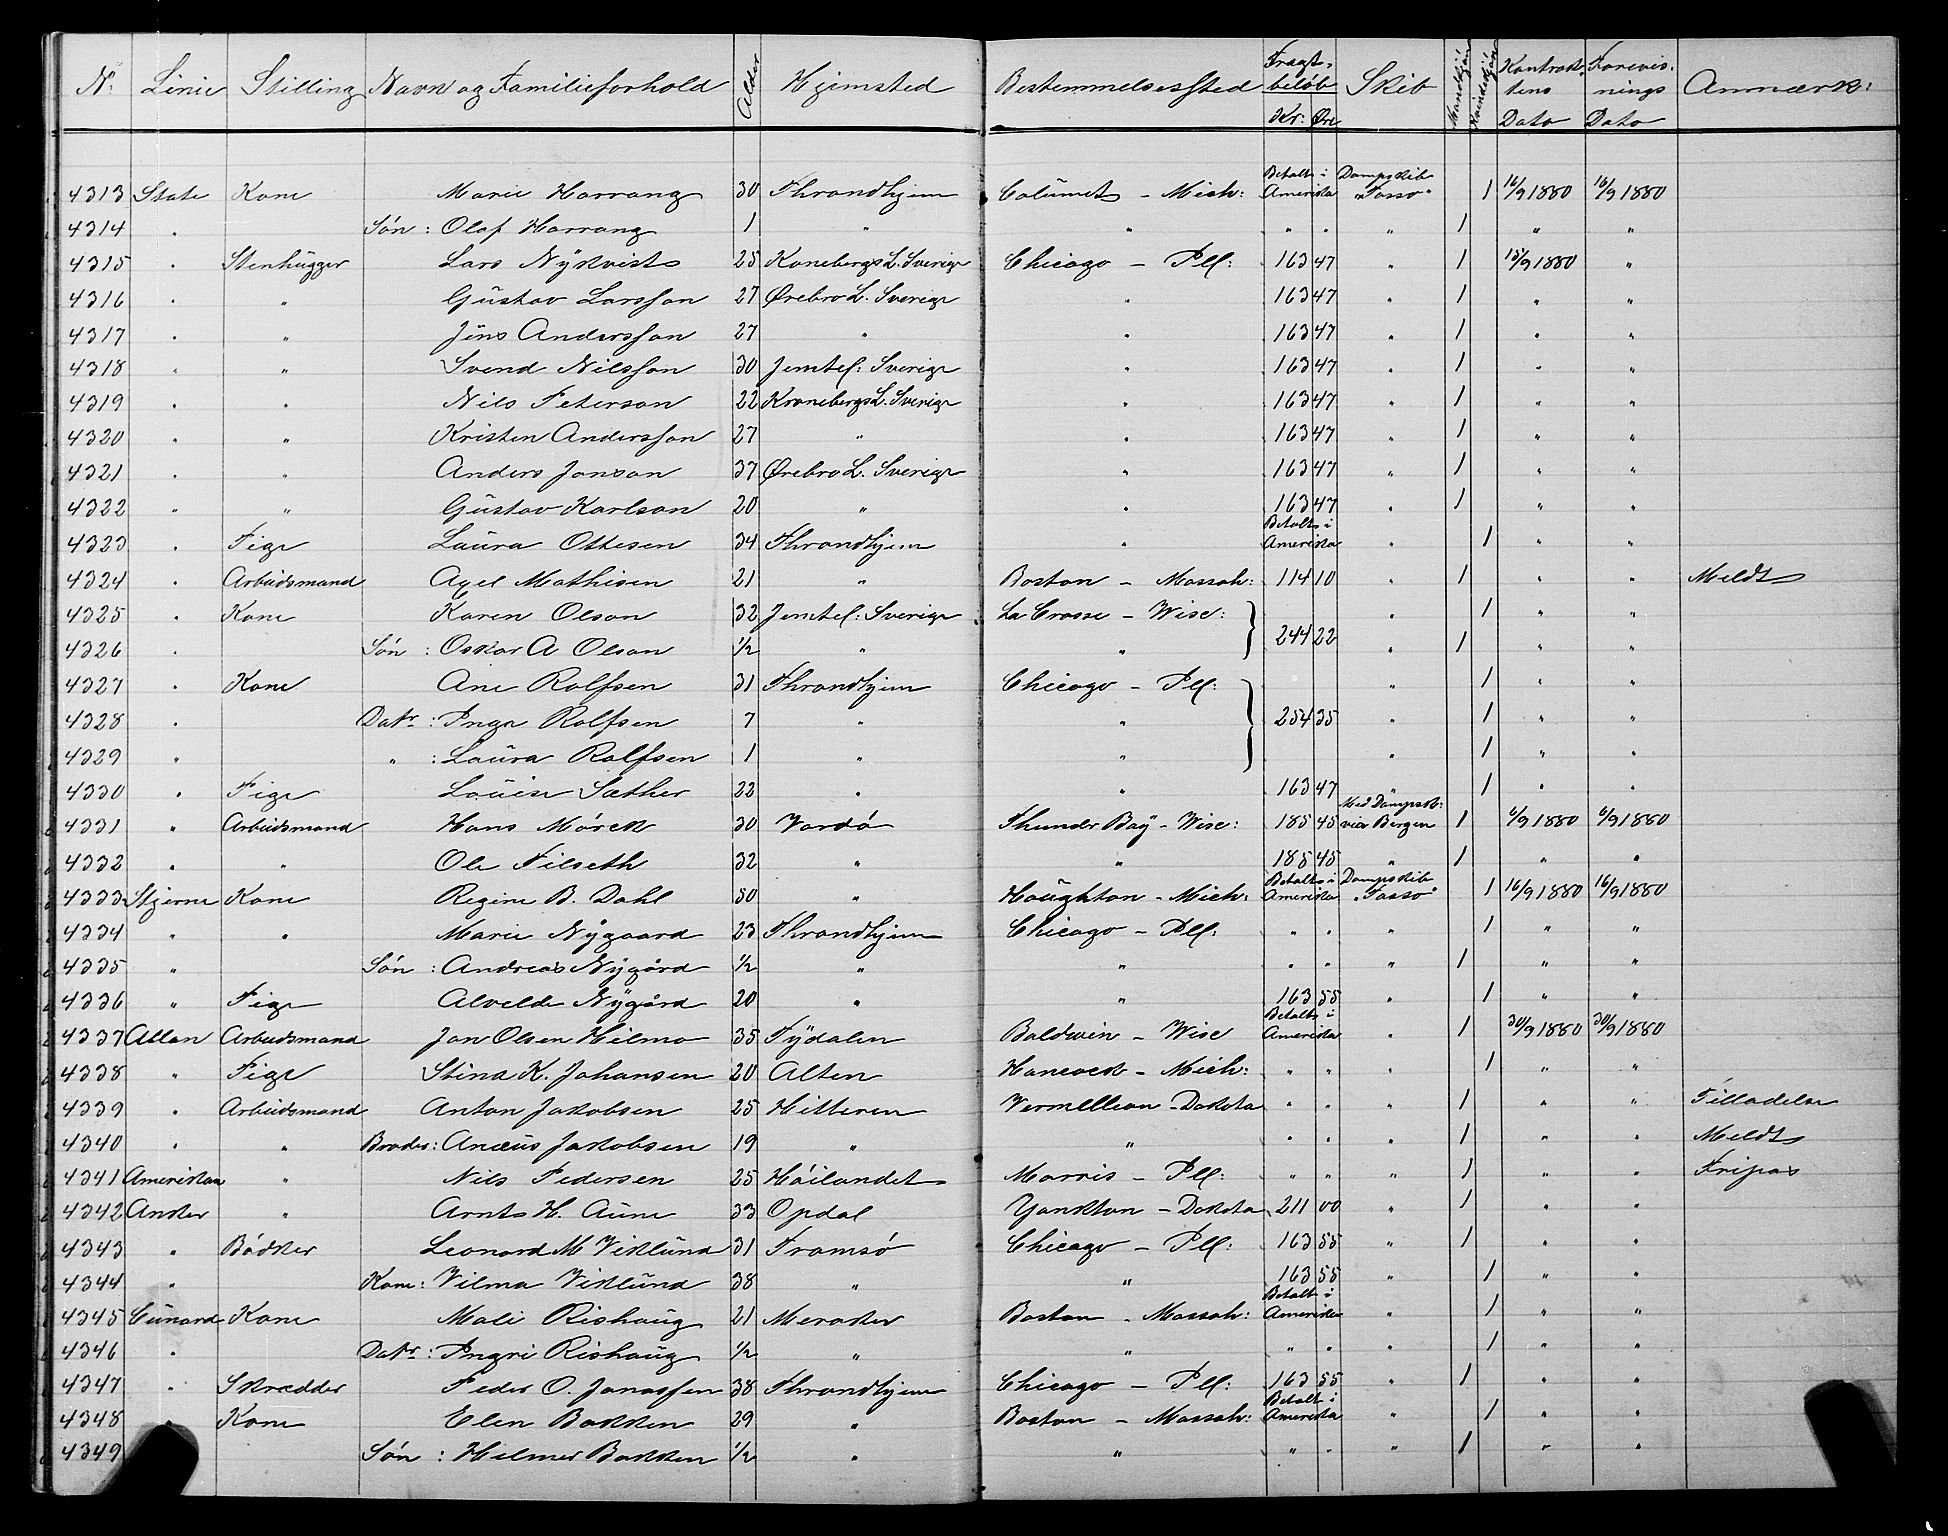 No: Linie Stilling Navn og Familieforhold Alder Hjemsted Bestemmelsessted Fragtbeløb Kr: Øre Skib Mandkjøn Kvindekjøn Kontraktens Dato Forevisnings Dato Anmærk:
4313 State Kone Marie Harrang 30 Throndhjem Calumet - Mich: Betalt i Amerika Dampskib "Tasso" 1 16/9 1880 16/9 1880
4314 " Søn: Olaf Harrang 1 " " " " " 1 " "
4315 " Stenhugger Lars Nykvist 25 Konebergs L. Sverige Chicago - Ill: 163 47 " 1 15/9 1880 "
4316 " " Gustav Larsson 27 Ørebro L. Sverige " 163 47 " 1 " "
4317 " " Jöns Andersson 27 " " 163 47 " 1 " "
4318 " " Svend Nilsson 30 Jemtel: Sverige " 163 47 " 1 " "
4319 " " Nils Peterson 22 Kronebergs L. Sverige " 163 47 " 1 " "
4320 " " Kristen Andersson 27 " " 163 47 " 1 " "
4321 " " Anders Jonson 37 Ørebro L. Sverige " 163 47 " 1 " "
4322 " " Gustav Karlson 20 " " 163 47 " 1 " "
4323 " Pige Laura Ottesen 34 Throndhjem " Betalt i Amerika " 1 " "
4324 " Arbeidsmand Axel Mathisen 21 " Boston - Massah: 114 10 " 1 " " Meldt
4325 " Kone Karen Olson 32 Jemtel: Sverige La Crosse - Wisc: " 1 " "
4326 " Søn: Oskar A Olson 1/2 " " 244 22 " 1 " "
4327 " Kone Ane Rolfsen 31 Throndhjem Chicago - Ill: " 1 " "
4328 " Datr: Inga Rolfsen 7 " " 254 35 " 1 " "
4329 " " : Laura Rolfsen 1 " " " 1 " "
4330 " Pige Louise Sæther 22 " " 163 47 " 1 " "
4331 " Arbeidsmand Hans Mörck 30 Vardø Thunder Bay - Wisc: 185 45 Med Dampsk: via Bergen 1 6/9 1880 6/9 1880
4332 " " Ole Filseth 32 " " 185 45 " 1 " "
4333 Stjerne Kone Regine B. Dahl 50 " Houghton - Mich: Betalt i Amerika Dampskib "Tasso" 1 16/9 1880 16/9 1880
4334 " " Marie Nygaard 23 Throndhjem Chicago - Ill: " " " 1 " "
4335 " Søn: Andreas Nygård 1/2 " " " " " 1 " "
4336 " Pige Alvelde Nygård 20 " " 163 55 " 1 " "
4337 Allan Arbeidsmand Jon Olsen Hilmo 35 Tydalen Baldwin - Wisc Betalt i Amerika " 1 30/9 1880 30/9 1880
4338 " Pige Stina K. Johansen 20 Alten Hancock - Mich: " " " 1 " "
4339 " Arbeidsmand Anton Jakobsen 25 Hitteren Vermillion - Dakota " " " 1 " " Tilladelse
4340 " " Broder: Anæus Jakobsen 19 " " " " " 1 " " Meldt
4341 Amerikan " Nils Pedersen 25 Høilandet Morris - Ill: " " " 1 " " Fripas
4342 Anker " Arnt H. Aune 33 Opdal Yankton - Dakota 211 00 " 1 " "
4343 " Bødker Leonard M Viklund 31 Tromsø Chicago - Ill: 163 55 " 1 " "
4344 " Kone: Vilma Viklund 38 " " 163 55 " 1 " "
4345 Cunard Kone Mali Rishaug 21 Meraker Boston - Massah: Betalt i Amerika " 1 " "
4346 " Datr: Ingri Rishaug 1/2 " " " " " 1 " "
4347 " Skrædder Peder O. Jonassen 38 Throndhjem Chicago - Ill: 163 55 " 1 " "
4348 " Kone Elen Bakken 29 " Boston - Massah: Betalt i Amerika " 1 " "
4349 Søn: Hilmer Bakken 1/2 " " " " " 1 " "